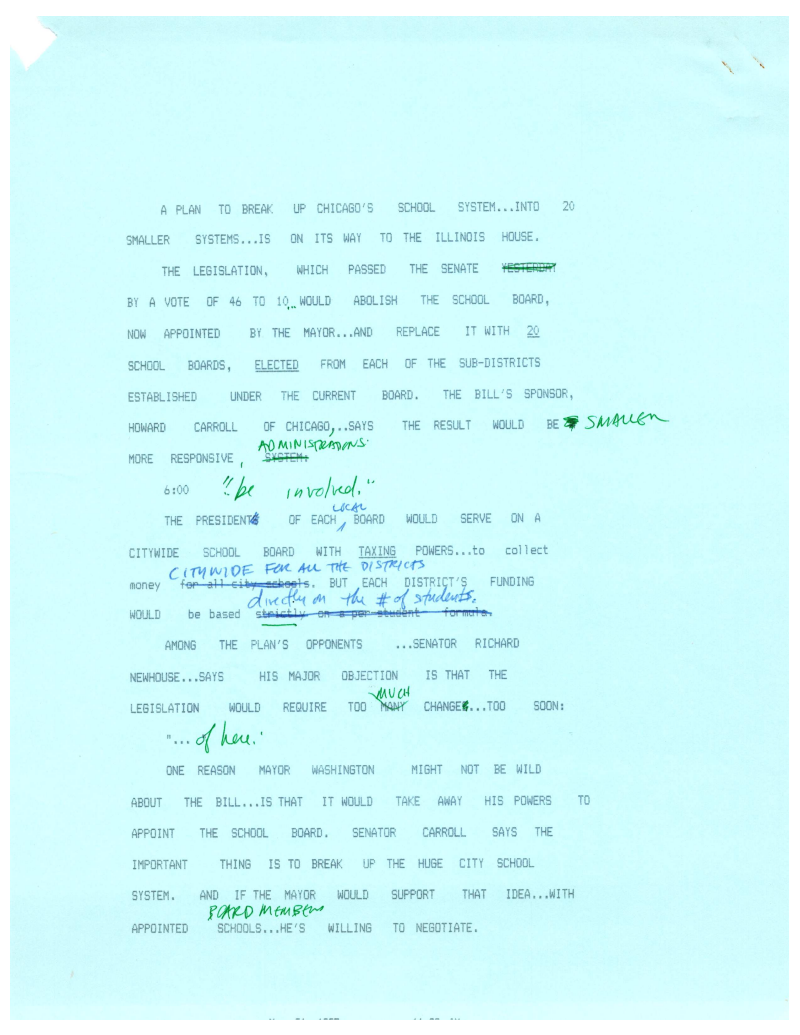 A PLAN TO BREAK UP CHICAGO'S SCHOOL SYSTEM...INTO 20
SMALLER SYSTEMS...IS ON ITS WAY TO THE ILLINOIS HOUSE.
THE LEGISLATION, WHICH PASSED THE SENATE YESTERDAY
BY A VOTE OF 46 TO 10,, WOULD ABOLISH THE SCHOOL BOARD,
NOW APPOINTED BY THE MAYOR...AND REPLACE IT WITH 20
SCHOOL BOARDS, ELECTED FROM EACH OF THE SUB-DISTRICTS
ESTABLISHED UNDER THE CURRENT BOARD. THE BILL'S SPONSOR,
HOWARD CARROLL OF CHICAGO,..SAYS THE RESULT WOULD BE SMALLER
ADMINISTRATIONS.
MORE RESPONSIVE, SYSTEM:
6:00 "be involved."
LOCAL
THE PRESIDENTS OF EACH BOARD WOULD SERVE ON A
CITYWIDE SCHOOL BOARD WITH TAXING POWERS...to collect
CITYWIDE FOR ALL THE DISTRICTS
money for all city schools. BUT EACH DISTRICT'S FUNDING
directly on the # of students.
WOULD be based strictly on a per student formula.
AMONG THE PLAN'S OPPONENTS ...SENATOR RICHARD
NEWHOUSE...SAYS HIS MAJOR OBJECTION IS THAT THE
MUCH
LEGISLATION WOULD REQUIRE TOO MANY CHANGES...TOO SOON:
"... of here."
ONE REASON MAYOR WASHINGTON MIGHT NOT BE WILD
ABOUT THE BILL...IS THAT IT WOULD TAKE AWAY HIS POWERS TO
APPOINT THE SCHOOL BOARD. SENATOR CARROLL SAYS THE
IMPORTANT THING IS TO BREAK UP THE HUGE CITY SCHOOL
SYSTEM. AND IF THE MAYOR WOULD SUPPORT THAT IDEA...WITH
BOARD MEMBERS
APPOINTED SCHOOLS...HE'S WILLING TO NEGOTIATE.